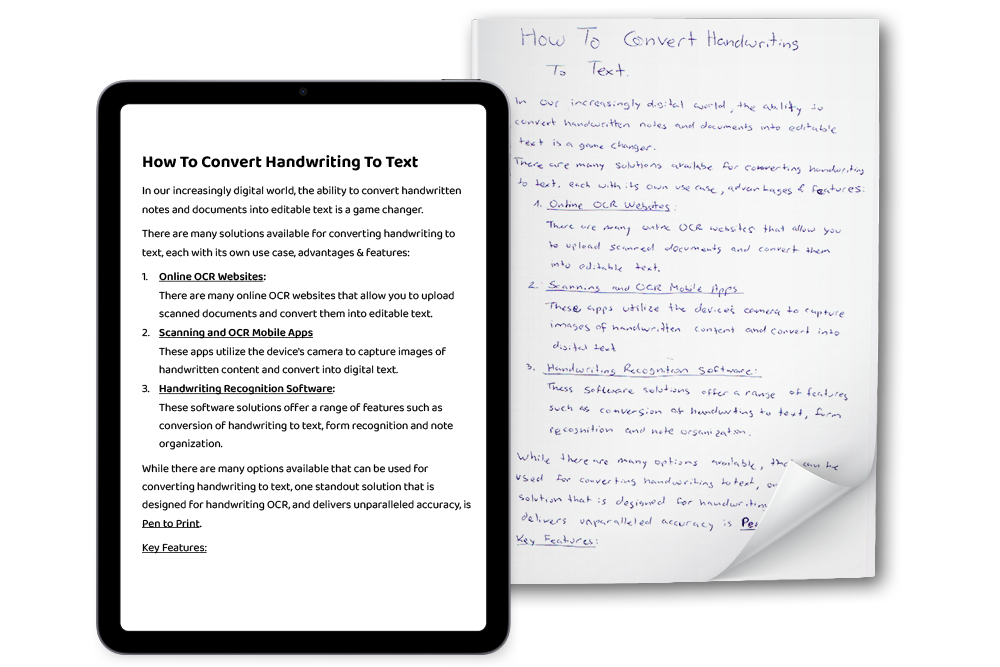 How To Convert Handwriting To Text
In our increasingly digital world, the ability to convert handwritten
notes and documents into editable text is a game changer.
There are many solutions available for converting handwriting to
text, each with its own use case, advantages & features:
1. Online OCR Websites:
There are many online OCR websites that allow you to upload
scanned documents and convert them into editable text.
2. Scanning and OCR Mobile Apps
These apps utilize the device's camera to capture images of
handwritten content and convert into digital text.
3. Handwriting Recognition Software:
These software solutions offer a range of features such as
conversion of handwriting to text, form recognition and note
organization.
While there are many options available that can be used for
converting handwriting to text, one standout solution that is
designed for handwriting OCR, and delivers unparalleled accuracy, is
Pen to Print.
Key Features:
How To Convert Handwriting
To Text.
In our increasingly digital world, the ability to
convert handwritten notes and documents into editable
text is a game changer.
There are many solutions availabe for converting handwriting
to text. each with its own use case, advantages & features:
1. Online OCR Websites:
There are many online OCR websites that allow you
to upload scanned documents and convert them
into editable text.
2. Scanning and OCR Mobile Apps
These apps utilize the device's camera to capture
images of handwritten content and convert into
digital text
3. Handwriting Recognition Software:
These software solutions offer a range of features
such as conversion of handwriting to text, form
recognition and note organization.
While there are many options available, can be
used for converting handwriting to text,
solution that is designed for
delivers unparalleled accuracy is
Key Features: